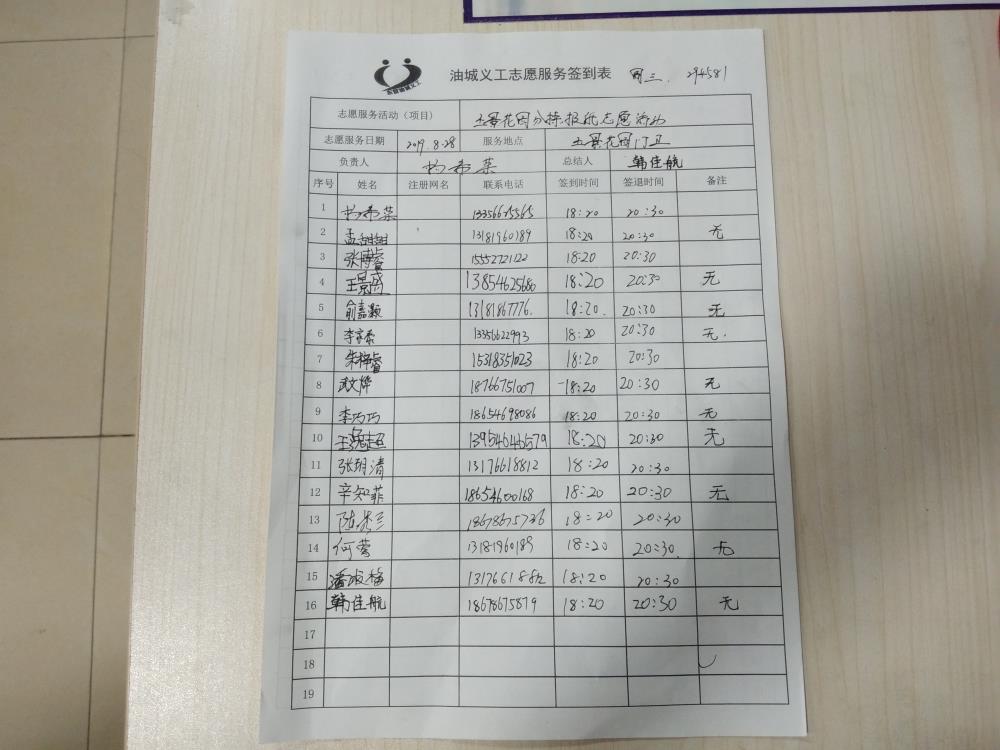 油城义工志愿服务签到表 周三. 294581
志愿服务活动（项目） 五景花园分拣报纸志愿活动
志愿服务日期 2019.8.28 服务地点 五景花园门卫
负责人 杨希菜 总结人 韩佳航
序号 姓名 注册网名 联系电话 签到时间 签退时间 备注
1 杨希菜 18:20 20:30
2 孟甜甜 13181960189 18:20 20:30 无
3 张博睿 15552721122 18:20 20:30
4 王景 13854625680 18:20 20:30 无
5 俞嘉灏 13181867776. 18:20. 20:30 无
6 13356622993 18:20 20:30 无.
7 朱梓睿 15318351023 18:20 20:30
8 武文烨 18766751007 18:20 20:30 无
9 李巧巧 18654698086 18:20 20:30 无
10 13954646579 18:20 20:30 无
11 张玥清 13176618812 18:20 20:30
12 辛知菲 18654600168 18:20 20:30 无
13 陈秀兰 18678675736 18:20 20:30
14 何莺 13181960189 18:20 20:30 无
15 潘淑梅 18:20 20:30
16 韩佳航 18678675879 18:20 20:30 无
17
18
19